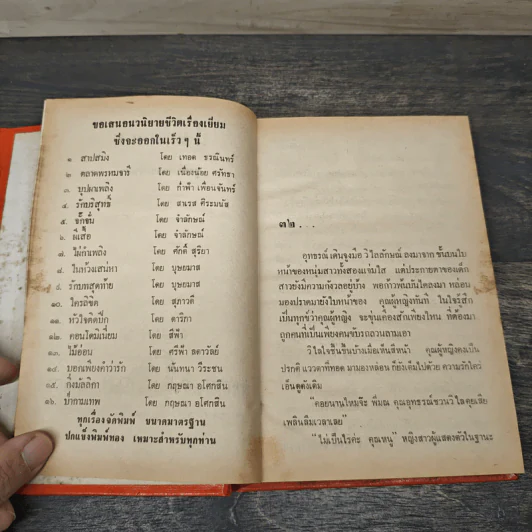 ขอเสนอนวนิยายชีวิตเรื่องเยี่ยม
ซึ่งจะออกในเร็ว ๆ นี้
๑. สาปสมิง โดย เทอด ธรณินทร์
๒. ตลาดพรหมจารี โดย เนื่องน้อย ศรัทธา
๓. บุปผาเพลิง โดย กำฬา เพื่อนจันทร์
๔. รักบริสุทธิ์ โดย สนรส ศิระมนัส
๕. ชั้ โดย จำลักษณ์
๖. ผีเสื้อ โดย จำลักษณ์
๗. ไม้กำเพลิง โดย ศักดิ์ สุริยา
๘. ในห้วงเสน่หา โดย บุษยมาส
๙. รักบทสุดท้าย โดย บุษยมาส
๑๐. ใครลิขิต โดย สุภาวดี
๑๑. หัวใจติดปีก โดย ดาริกา
๑๒. คอนโดมเนี่ยม โดย สีฟ้า
๑๓. ไม้อ่อน โดย ศรีฟ้า ลดาวัลย์
๑๔. บอกเพียงคำว่ารัก โดย นันทนา วีระชน
๑๕. กิ่งมัลลิกา โดย กฤษณา อโศกสิน
๑๖. ป่ากามเทพ โดย กฤษณา อโศกสิน
ทุกเรื่องจัดพิมพ์ ขนาดมาตรฐาน
ปกแข็งพิมพ์ทอง เหมาะสำหรับทุกท่าน
๓๒ . . .
อุทธรณ์ เดินจูงมือ วิไลลักษณ์ ลงมาจาก ชั้นบนใบ
หน้าของหนุ่มสาวทั้งสองแจ่มใส แต่ประกายตาของเด็ก
สาวยังมีความกังวลอยู่บ้าง พอก้าวพ้นบันไดลงมา หล่อน
มองปราดมายังใบหน้าของ คุณผู้หญิงทันที ในใจรู้สึก
เป็นทุกข์ว่าคุณผู้หญิง จะขุ่นเคืองสักเพียงไหน ที่ต้องมา
ถูกคนที่เป็นเพียงคนขับรถลวนลามเอา
วิไลใจชื้นขึ้นบ้างเมื่อเห็นสีหน้า คุณผู้หญิงคงเป็น
ปรกติ แววตาที่ทอด มามองหล่อน ก็ยังเต็มไปด้วย ความรักใคร่
เอ็นดูดังเดิม
"คอยนานไหมจ๊ะ พิมณ คุณอุทธรณ์ชวนวิไลคุยเสีย
เพลินลืมเวลาเลย"
"ไม่เป็นไรค่ะ คุณหนู" หญิงสาวผู้แสดงตัวในฐานะ